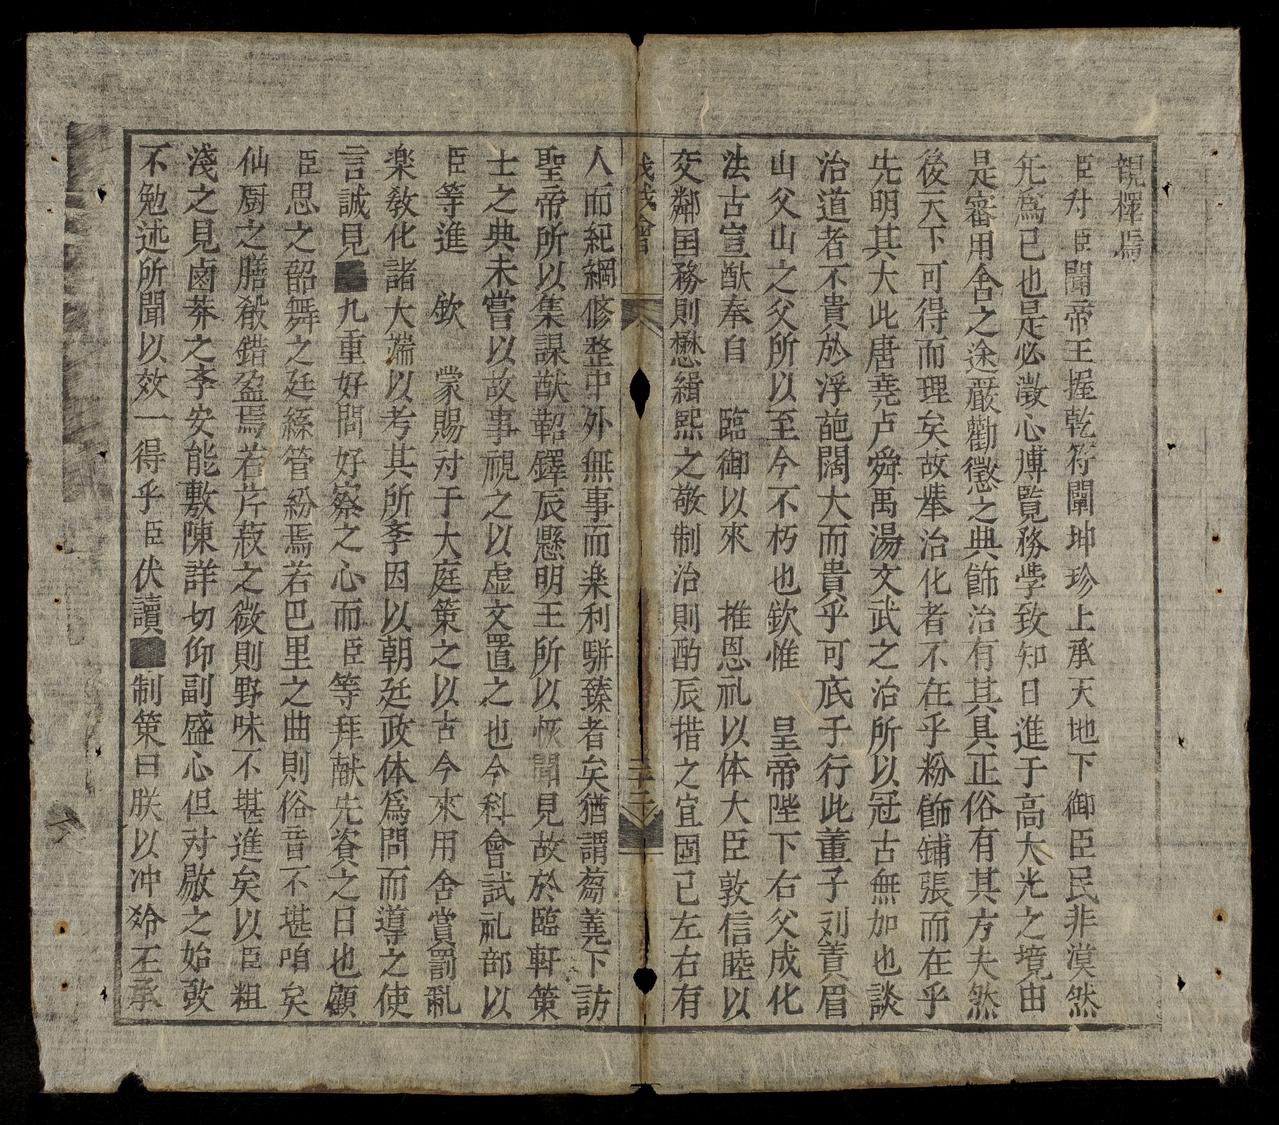 親擇焉
臣对臣聞帝王握乾符闡坤珍上承天地下御臣民非漠然
先爲已也是必澂心博覧務学致知日進于高大光之境由
是審用舍之途嚴勸懲之典飾治有其具正俗有其方夫然
後天下可得而理矣故㪯治化者不在乎粉飾鋪張而在乎
先明其大此唐尭卢舜禹湯文武之治所以冠古無加也談
治道者不貴於浮葩闊大而貴乎可底于行此董子刘蕡眉
山父山之父所以至今不朽也欽惟　皇帝陛下右父成化
法古宣猷奉自　臨御以來　推恩礼以体大臣敦信睦以
交鄰囯務則懋緝熙之敬制治則酌辰措之宜固已左右有
三
人而紀綱修整中外無事而楽利駢臻者矣猶謂蒭蕘下訪
聖帝所以集謀猷鞀鐸辰懸明王所以恢聞見故於臨軒策
士之典未嘗以故事視之以虚文置之也今科會試礼部以
臣等進　欽　蒙賜对于大庭策之以古今來用舍賞罰乿
楽敎化諸大端以考其所李因以朝廷政体爲問而導之使
言誠見九重好問好察之心而臣等拜献先資之日也顧
臣思之韶舞之廷絲管紛焉若巴里之曲則俗音不堪咱矣
仙厨之膳殽錯盈焉若芹菽之微則野味不堪進矣以臣粗
淺之見鹵莽之李安能敷陳詳切仰副盛心但对敭之始敢
不勉述所聞以效一得乎臣伏讀制策曰朕以冲齡丕承